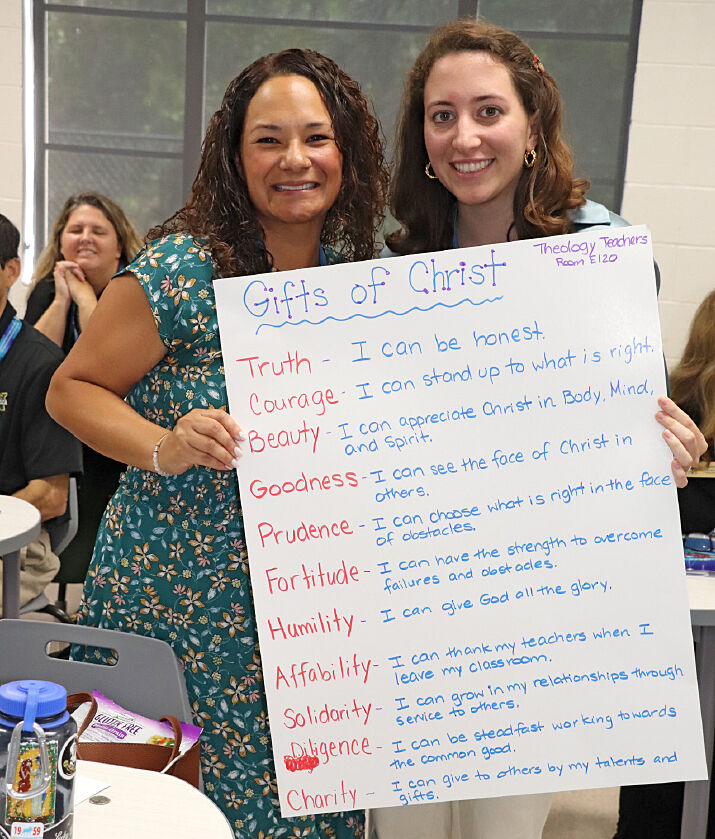 Gifts of Christ
Theology Teachers
Room E120
Truth - I can be honest.
Courage - I can stand up to what is right.
Beauty - I can appreciate Christ in Body, Mind,
and Spirit.
Goodness - I can see the face of Christ in
others.
Prudence - I can choose what is right in the face
of obstacles.
Fortitude - I can have the strength to overcome
failures and obstacles.
Humility - I can give God all the glory.
Affability - I can thank my teachers when I
leave my classroom.
Solidarity - I can grow in my relationships through
service to others.
Diligence - I can be steadfast working towards
the common good.
Charity - I can give to others by my talents and
gifts.
GLUTEN FREE
19 59